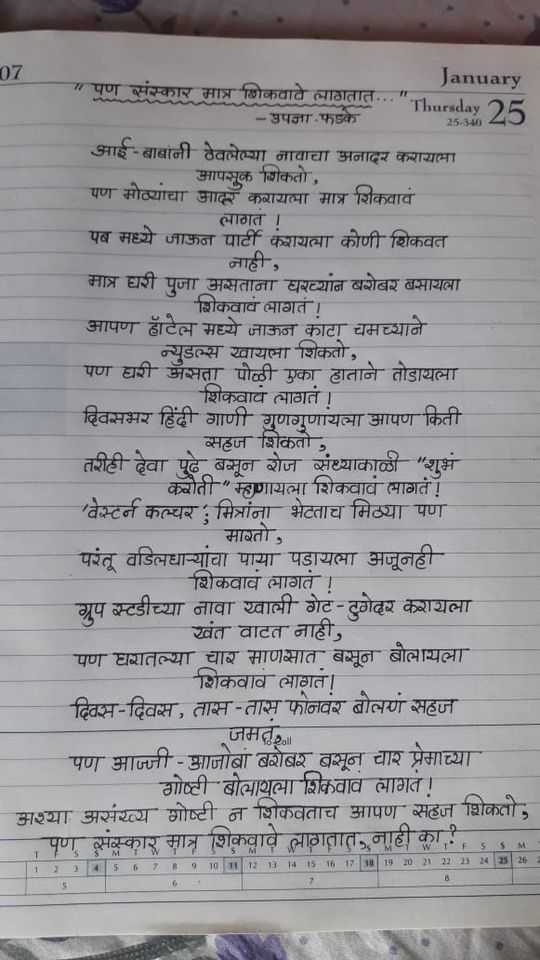 07
January
Thursday 25
25-340
" पण संस्कार मात्र शिकवावे लागतात... "
- उपज्ञा फडके
आई-बाबांनी ठेवलेल्या नावाचा अनादर करायला
आपसुक शिकतो,
पण मोठ्यांचा आदर करायला मात्र शिकवावं
लागतं !
पब मध्ये जाऊन पार्टी करायला कोणी शिकवत
नाही,
मात्र घरी पुजा असताना घरच्यांन बरोबर बसायला
शिकवावं लागतं !
आपण हॉटेल मध्ये जाऊन काटा चमच्याने
न्युडल्स खायला शिकतो,
पण घरी असता पोळी एका हाताने तोडायला
शिकवावं लागतं !
दिवसभर हिंदी गाणी गुणगुणायला आपण किती
सहज शिकतो,
तरीही देवा पुढे बसून रोज संध्याकाळी "शुभं
करोती" म्हणायला शिकवावं लागतं !
'वेस्टर्न कल्चर'; मित्रांना भेटताच मिठ्या पण
मारतो,
परंतू वडिलधाऱ्यांचा पाया पडायला अजूनही
शिकवावं लागतं !
ग्रुप स्टडीच्या नावा खाली गेट-टुगेदर करायला
खंत वाटत नाही,
पण घरातल्या चार माणसात बसून बोलायला
शिकवावं लागतं!
दिवस-दिवस, तास-तास फोनवर बोलणं सहज
जमतं,
पण आज्जी-आजोबां बरोबर बसून चार प्रेमाच्या
गोष्टी बोलायला शिकवावं लागतं !
अश्या असंख्य गोष्टी न शिकवताच आपण सहज शिकतो,
पण संस्कार मात्र शिकवावे लागतात, नाही का ?
T F S S M T W T F S S M T W T F S S M T W T F S S M
1 2 3 4 5 6 7 8 9 10 11 12 13 14 15 16 17 18 19 20 21 22 23 24 25 26
5 6 7 8